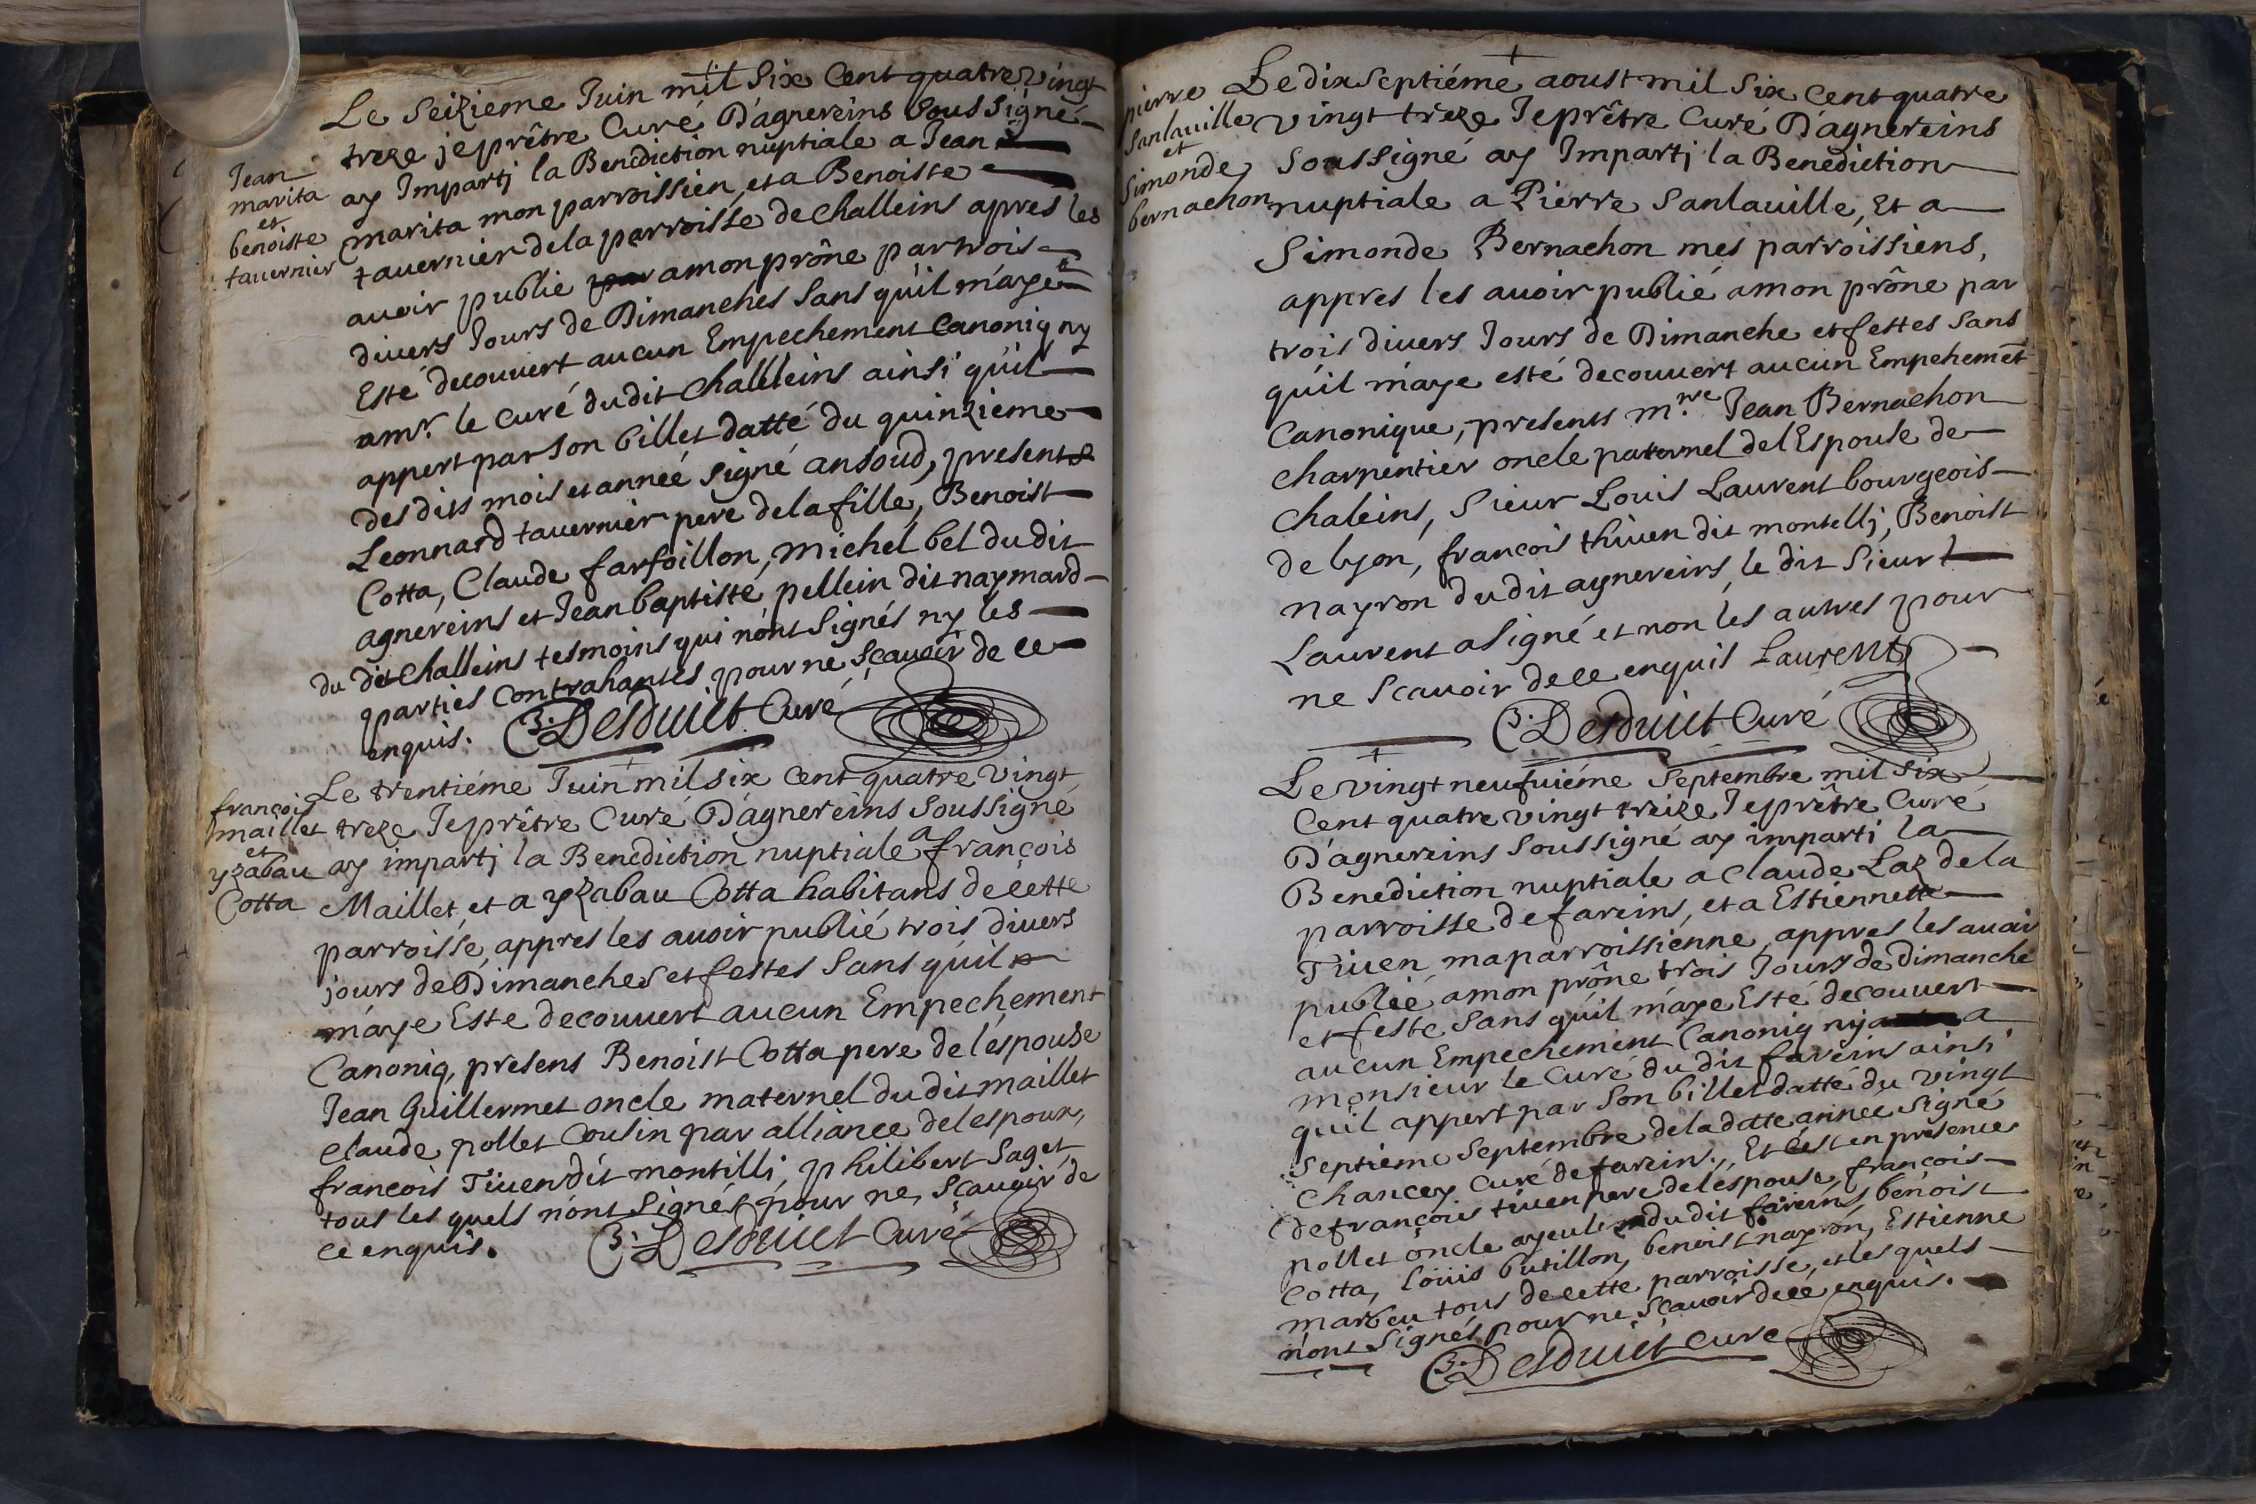 Le Seizieme Juin mil Six Cent quatre vingt
treze je prêtre Curé D'agnereins Soussigné
Jean
marita
et
benoiste
tavernier
ay Impartj la Benediction nuptiale a Jean
marita mon parroissien, et a Benoiste
tavernier de la parroisse de challeins apres les
avoir publié par a mon prône par trois
divers Jours de Dimanches Sans qu'il m'aye
Esté decouvert aucun Empechement Canoniq ny
a mr. le Curé du dit challeins ainsi qu'il
appert par Son billet datté du quinzieme
des dits mois et année Signé ansoud, presents
Leonnard tavernier pere de la fille, Benoist
Cotta, Claude farfoillon, michel bel du dit
agnereins et Jean baptiste pellein dit naymard
du dit challeins tesmoins qui n'ont Signés ny les
parties Contrahantes pour ne Sçavoir de ce
enquis. Desduict Curé
françois
maillet
et
yzabau
Cotta
Le trentiéme Juin mil six Cent quatre vingt
treze Je prêtre Curé D'agnereins Soussigné
ay impartj la Benediction nuptiale a françois
Maillet, et a yzabau Cotta habitans de cette
parroisse, appres les avoir publié trois divers
jours de Dimanches et festes Sans qu'il
m'aye Este decouvert aucun Empechement
Canoniq, presens Benoist Cotta pere de l'espouse
Jean Guillermet oncle maternel du dit maillet
claude pollet Cousin par alliance de lespoux,
francois Tiven dit montilli, philibert Saget,
tous les quels n'ont Signés pour ne Sçavoir de
ce enquis. Desduict Curé
pierre
Sanlauille
et
Simonde
bernachon
Le dix Septiéme aoust mil Six Cent quatre
vingt treze Je prêtre Curé D'agnereins
Soussigné ay Impartj la Benediction
nuptiale a Pierre Sanlauille, Et a
Simonde Bernachon mes parroissiens,
appres les avoir publié a mon prône par
trois divers Jours de Dimanche et festes Sans
qu'il m'aye esté decouvert aucun Empehemēt
Canonique, presents m.re Jean Bernachon
charpentier oncle paternel de l'Espouse de
chaleins, Sieur Louis Laurent bourgeois
de lyon, françois thiven dit montellj, Benoist
nayron du dit agnereins, le dit Sieur
Laurent a Signé et non les autres pour
ne Scavoir de ce enquis Laurent
Desduict Curé
Le vingt neufuiéme Septembre mil Six
Cent quatre vingt treize Je prêtre Curé
D'agnereins Soussigné ay imparti la
Benediction nuptiale a claude Laz de la
parroisse de fareins, et a Estiennette
Tiven ma parroissienne, appres les avoir
publiéé a mon prône trois Jours de Dimanche
et feste Sans qu'il m'aye Esté decouvert
aucun Empechement Canoniq ny a
monsieur le Curé du dit fareins ainsi
qu'il appert par Son billet datté du vingt
Septieme Septembre de la datte année Signé
Chancey Curé de fareins, Et c'est en presence
de françois tiven pere de l'espouse, françois
pollet oncle ayeul du dit fareins, benoist
Cotta, Loüis butillon, benoist nayron, Estienne
marbeu tous de cette parroisse, et les quels
n'ont Signés pour ne Sçavoir de ce enquis.
Desduict curé